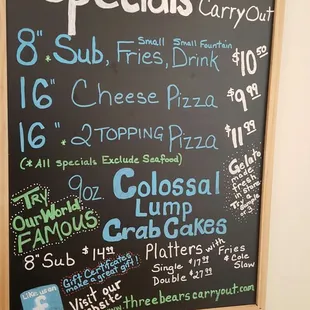 Specials
Carry Out
8" * Sub, Small Fries, Small Fountain Drink $10.50
16" Cheese Pizza $9.99
16" * 2 TOPPING Pizza $11.99
(* All specials Exclude Seafood)
Gelato
made
fresh
in store
Try a
or
TRY
Our World
FAMOUS
9oz. Colossal
Lump
Crab Cakes
8" Sub $14.99
Platters with Fries & Cole Slaw
Single $17.99
Double $27.99
Gift Certificates
make a great gift!
Like us on
f
Visit our
website
www.threebearscarryout.com